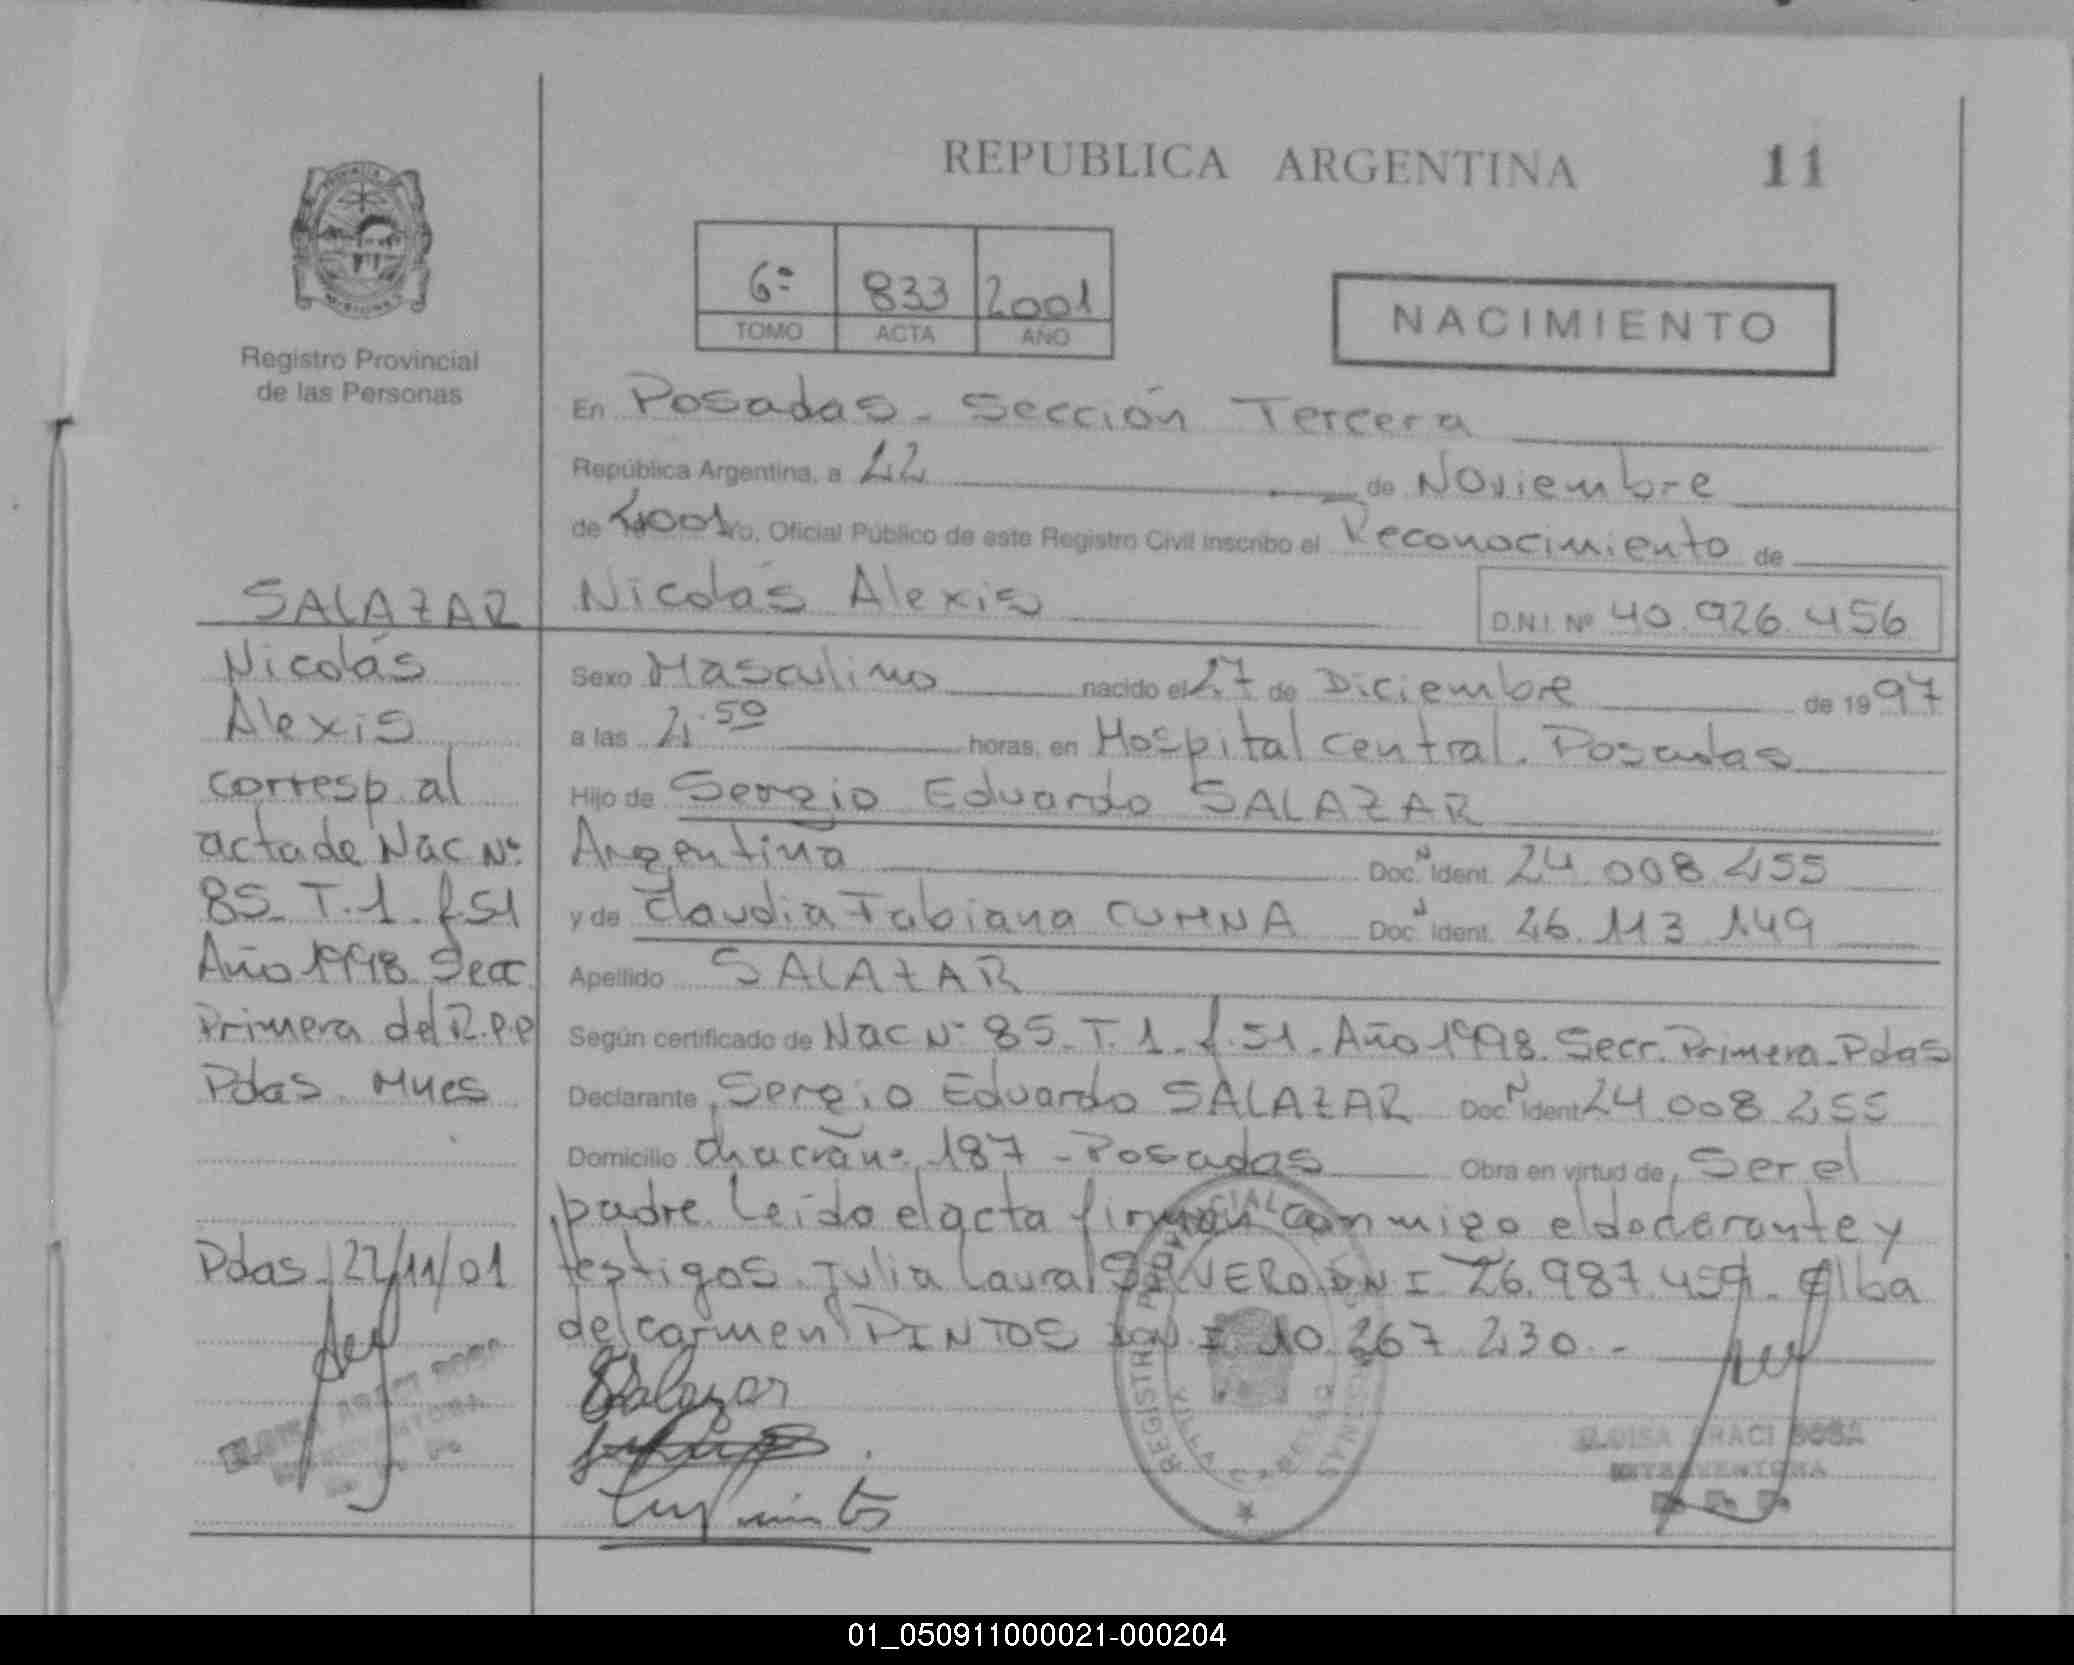 REPUBLICA ARGENTINA
11
6º 833 2001
TOMO ACTA AÑO
NACIMIENTO
Registro Provincial
de las Personas
En Posadas - Sección Tercera
República Argentina, a 22 de Noviembre
de 2001 Yo, Oficial Público de este Registro Civil inscribo el Reconocimiento de
Nicolás Alexis
D.N.I. Nº 40.926.456
Sexo Masculino nacido el 27 de Diciembre de 1997
a las 2.50 horas, en Hospital Central. Posadas
Hijo de Sergio Eduardo SALAZAR
Argentina Doc. N Ident. 24.008.255
y de Claudia Fabiana Doc. N Ident. 26.113.149
Apellido SALAZAR
Según certificado de Nac Nº 85. T.1. f.51. Año 1998. Secr. Primera. Pdas
Declarante Sergio Eduardo SALAZAR Doc. N Ident 24.008.255
Domicilio Chacra nº 187 - Posadas Obra en virtud de Ser el
padre. Leído el acta firman conmigo el declarante y
testigos. Julia Laura DNI 26.987.459. Elba
del Carmen PINTOS DNI 10.267.230.-
SALAZAR
Nicolás
Alexis
Corresp. al
acta de Nac Nº
85. T.1. f.51
Año 1998. Secc
Primera del R.P.P
Pdas. Mnes
Pdas. 22/11/01
Salazar
ELOISA ARACI SOSA
INTERVENTORA
ELOISA ARACI SOSA
INTERVENTORA
01_050911000021-000204